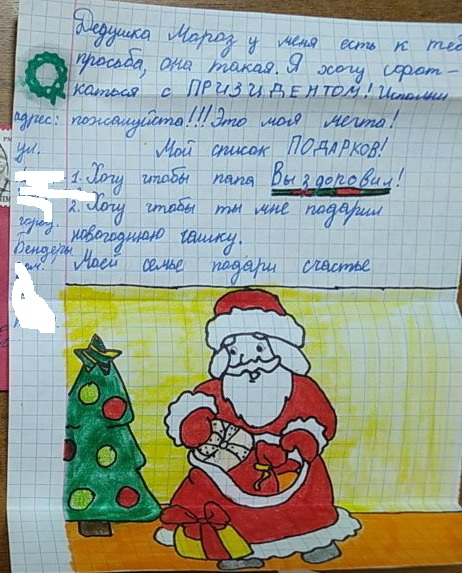 Дедушка Мороз у меня есть к теб
просьба, она такая. Я хочу сфрот-
каться с ПРИЗИДЕНТОМ! Исполни
адрес: пожалуйста!!! Это моя мечта!
ул. Мой список ПОДАРКОВ!
1. Хочу чтобы папа Выздоровил!
2. Хочу чтобы ты мне подарил
город.
новогоднюю чашку.
Бендеры
Моей семье подари счастье